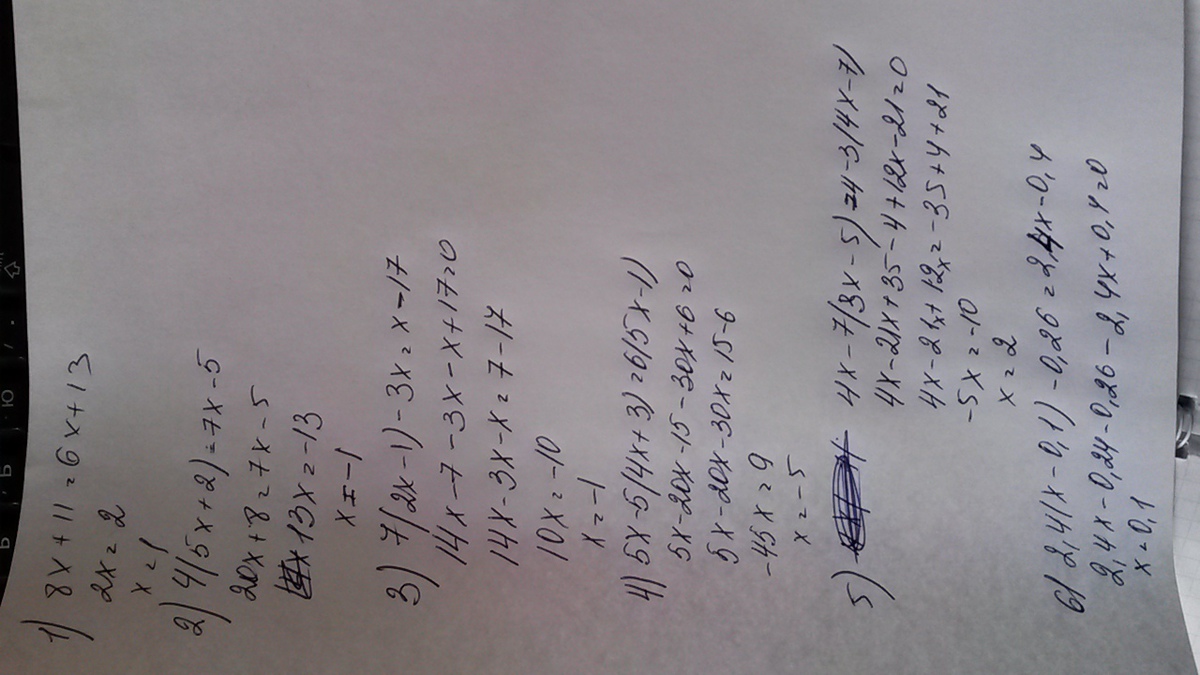 1) 8x + 11 = 6x + 13
2x = 2
x = 1
2) 4(5x + 2) = 7x - 5
20x + 8 = 7x - 5
13x = -13
x = -1
3) 7(2x - 1) - 3x = x - 17
14x - 7 - 3x - x + 17 = 0
14x - 3x - x = 7 - 17
10x = -10
x = -1
4) 5x - 5(4x + 3) = 6(5x - 1)
5x - 20x - 15 - 30x + 6 = 0
5x - 20x - 30x = 15 - 6
-45x = 9
x = -5
5) 4x - 7(3x - 5) = 4 - 3(4x - 7)
4x - 21x + 35 - 4 + 12x - 21 = 0
4x - 21x + 12x = -35 + 4 + 21
-5x = -10
x = 2
6) 2,4(x - 0,1) - 0,26 = 2,4x - 0,4
2,4x - 0,24 - 0,26 - 2,4x + 0,4 = 0
x = 0,1
Ь Б Ю .